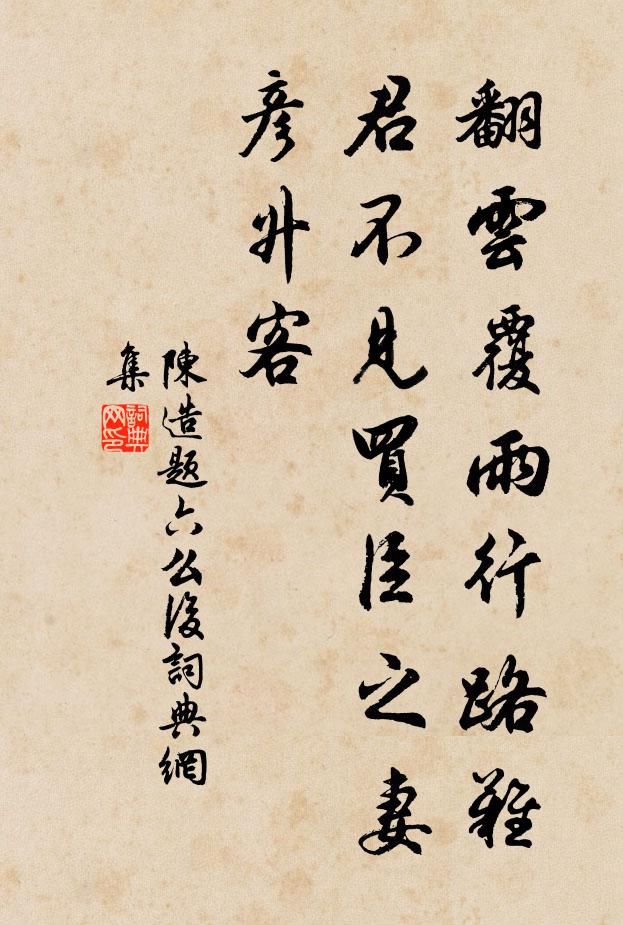 翻雲覆雨行路難
君不見買臣之妻
彥升客
陳造題六么後詞典網
集
詞典网印